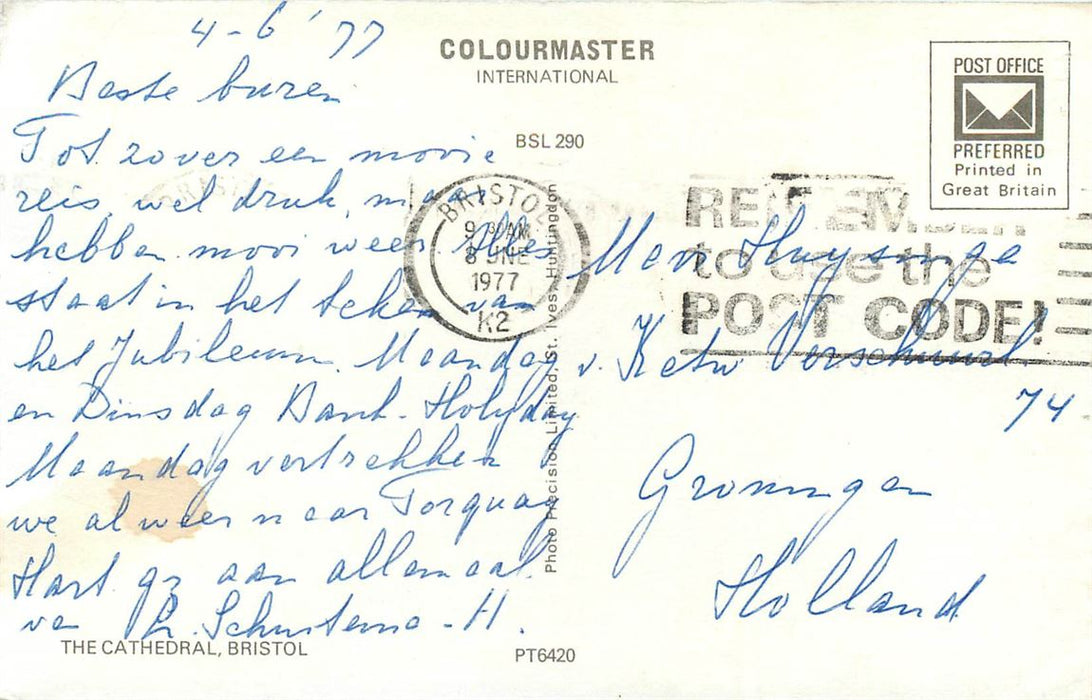 4-6 '77
COLOURMASTER
INTERNATIONAL
POST OFFICE
PREFERRED
Printed in
Great Britain
BSL 290
Beste buren
Tot zover een mooie
reis, wel druk, maar
hebben mooi weer. Alles
staat in het teken van
het Jubileum. Maandag
en Dinsdag Bank-Holyday
Maandag vertrekken
we al weer naar Torquay
Hart. gr aan allemaal.
van R. Schuitema - H.
BRISTOL
9 30 AM
8 JUNE
1977
K2
REMEMBER
to use the
POST CODE!
Mevr Huysinga
v. Ketw Verschuurl
74
Groningen
Holland
Photo Precision Limited, St. Ives, Huntingdon
THE CATHEDRAL, BRISTOL
PT6420